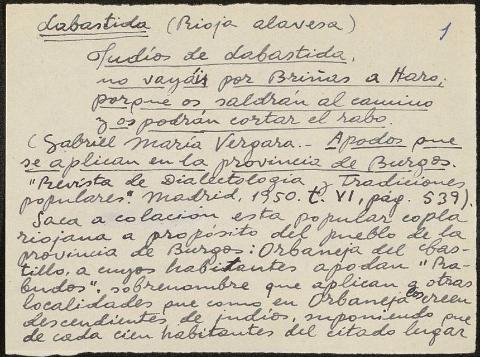 Labastida (Rioja alavesa) 1
Judíos de Labastida,
no vayáis por Briñas a Haro,
porque os saldrán al camino
y os podrán cortar el rabo.
(Gabriel María Vergara.- Apodos que
se aplican en la provincia de Burgos.
"Revista de Dialectología y Tradiciones
populares". Madrid, 1950. t. VI, pág. 539).
Saca a colación esta popular copla
riojana a propósito del pueblo de la
provincia de Burgos: Orbaneja del Cas-
tillo, a cuyos habitantes apodan "Ra-
budos", sobrenombre que aplican a otras
localidades que como en Orbaneja los creen
descendientes de judíos, suponiendo que
de cada cien habitantes del citado lugar